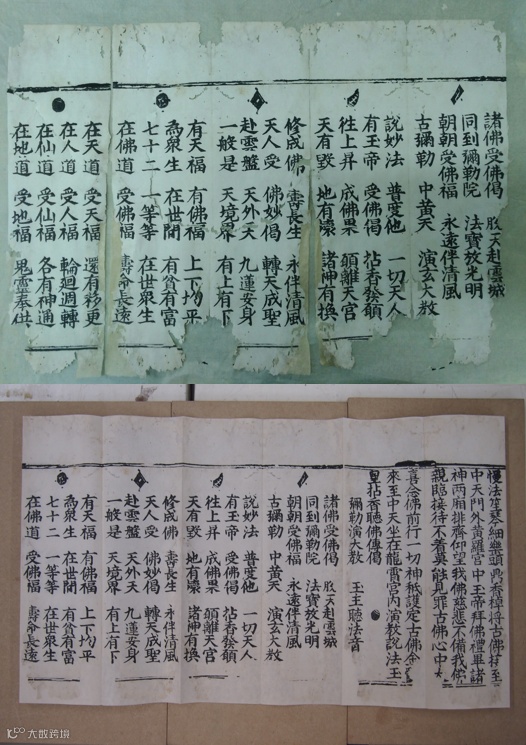 諸佛受佛偈 天赴雲城
同到彌勒院 法寶放光明
朝朝受佛福 永遠伴清風
古彌勒 中黃天 演玄大教
說妙法 普度他 一切天人
有玉帝 受佛偈 拈香發願
徃上昇 成佛果 願離天宮
天有毀 地有壞 諸神有換
修成佛 壽長生 永伴清風
天人受 佛妙偈 轉天成聖
赴雲盤 天外天 九蓮安身
一般是 天境界 有上有下
有天福 有佛福 上下均平
為衆生 在世間 有貧有富
七十二 一等等 在世衆生
在佛道 受佛福 壽命長遠
在天道 受天福 還有移更
在人道 受人福 輪迴週轉
在仙道 受仙福 各有神通
在地道 受地福 鬼靈奉供
慢法笙琴細樂頭頂香樟將古佛接至
中天門外黃羅宮中玉帝拜佛禮畢諸
神兩廂排齊仰望我佛慈悲不備我
親臨接待不 莫能見罪古佛心中大
善念佛前行一切神祇護定古佛
來至中天坐在龍霄宮內演教說法玉
皇拈香聽佛傳偈
彌勒演大教 玉主聽法音
諸佛受佛偈 天赴雲城
同到彌勒院 法寶放光明
朝朝受佛福 永遠伴清風
古彌勒 中黃天 演玄大教
說妙法 普度他 一切天人
有玉帝 受佛偈 拈香發願
徃上昇 成佛果 願離天宮
天有毀 地有壞 諸神有換
修成佛 壽長生 永伴清風
天人受 佛妙偈 轉天成聖
赴雲盤 天外天 九蓮安身
一般是 天境界 有上有下
有天福 有佛福 上下均平
為衆生 在世間 有貧有富
七十二 一等等 在世衆生
在佛道 受佛福 壽命長遠
大數跨境